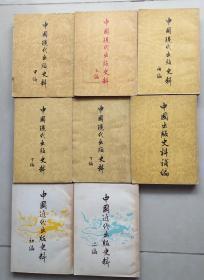 中國現代出版史料
甲編
中國現代出版史料
乙編
中國現代出版史料
丙編
中國現代出版史料
丁編
中國現代出版史料
丁編
中國出版史料補編
中國近代出版史料
初編
中國近代出版史料
二編